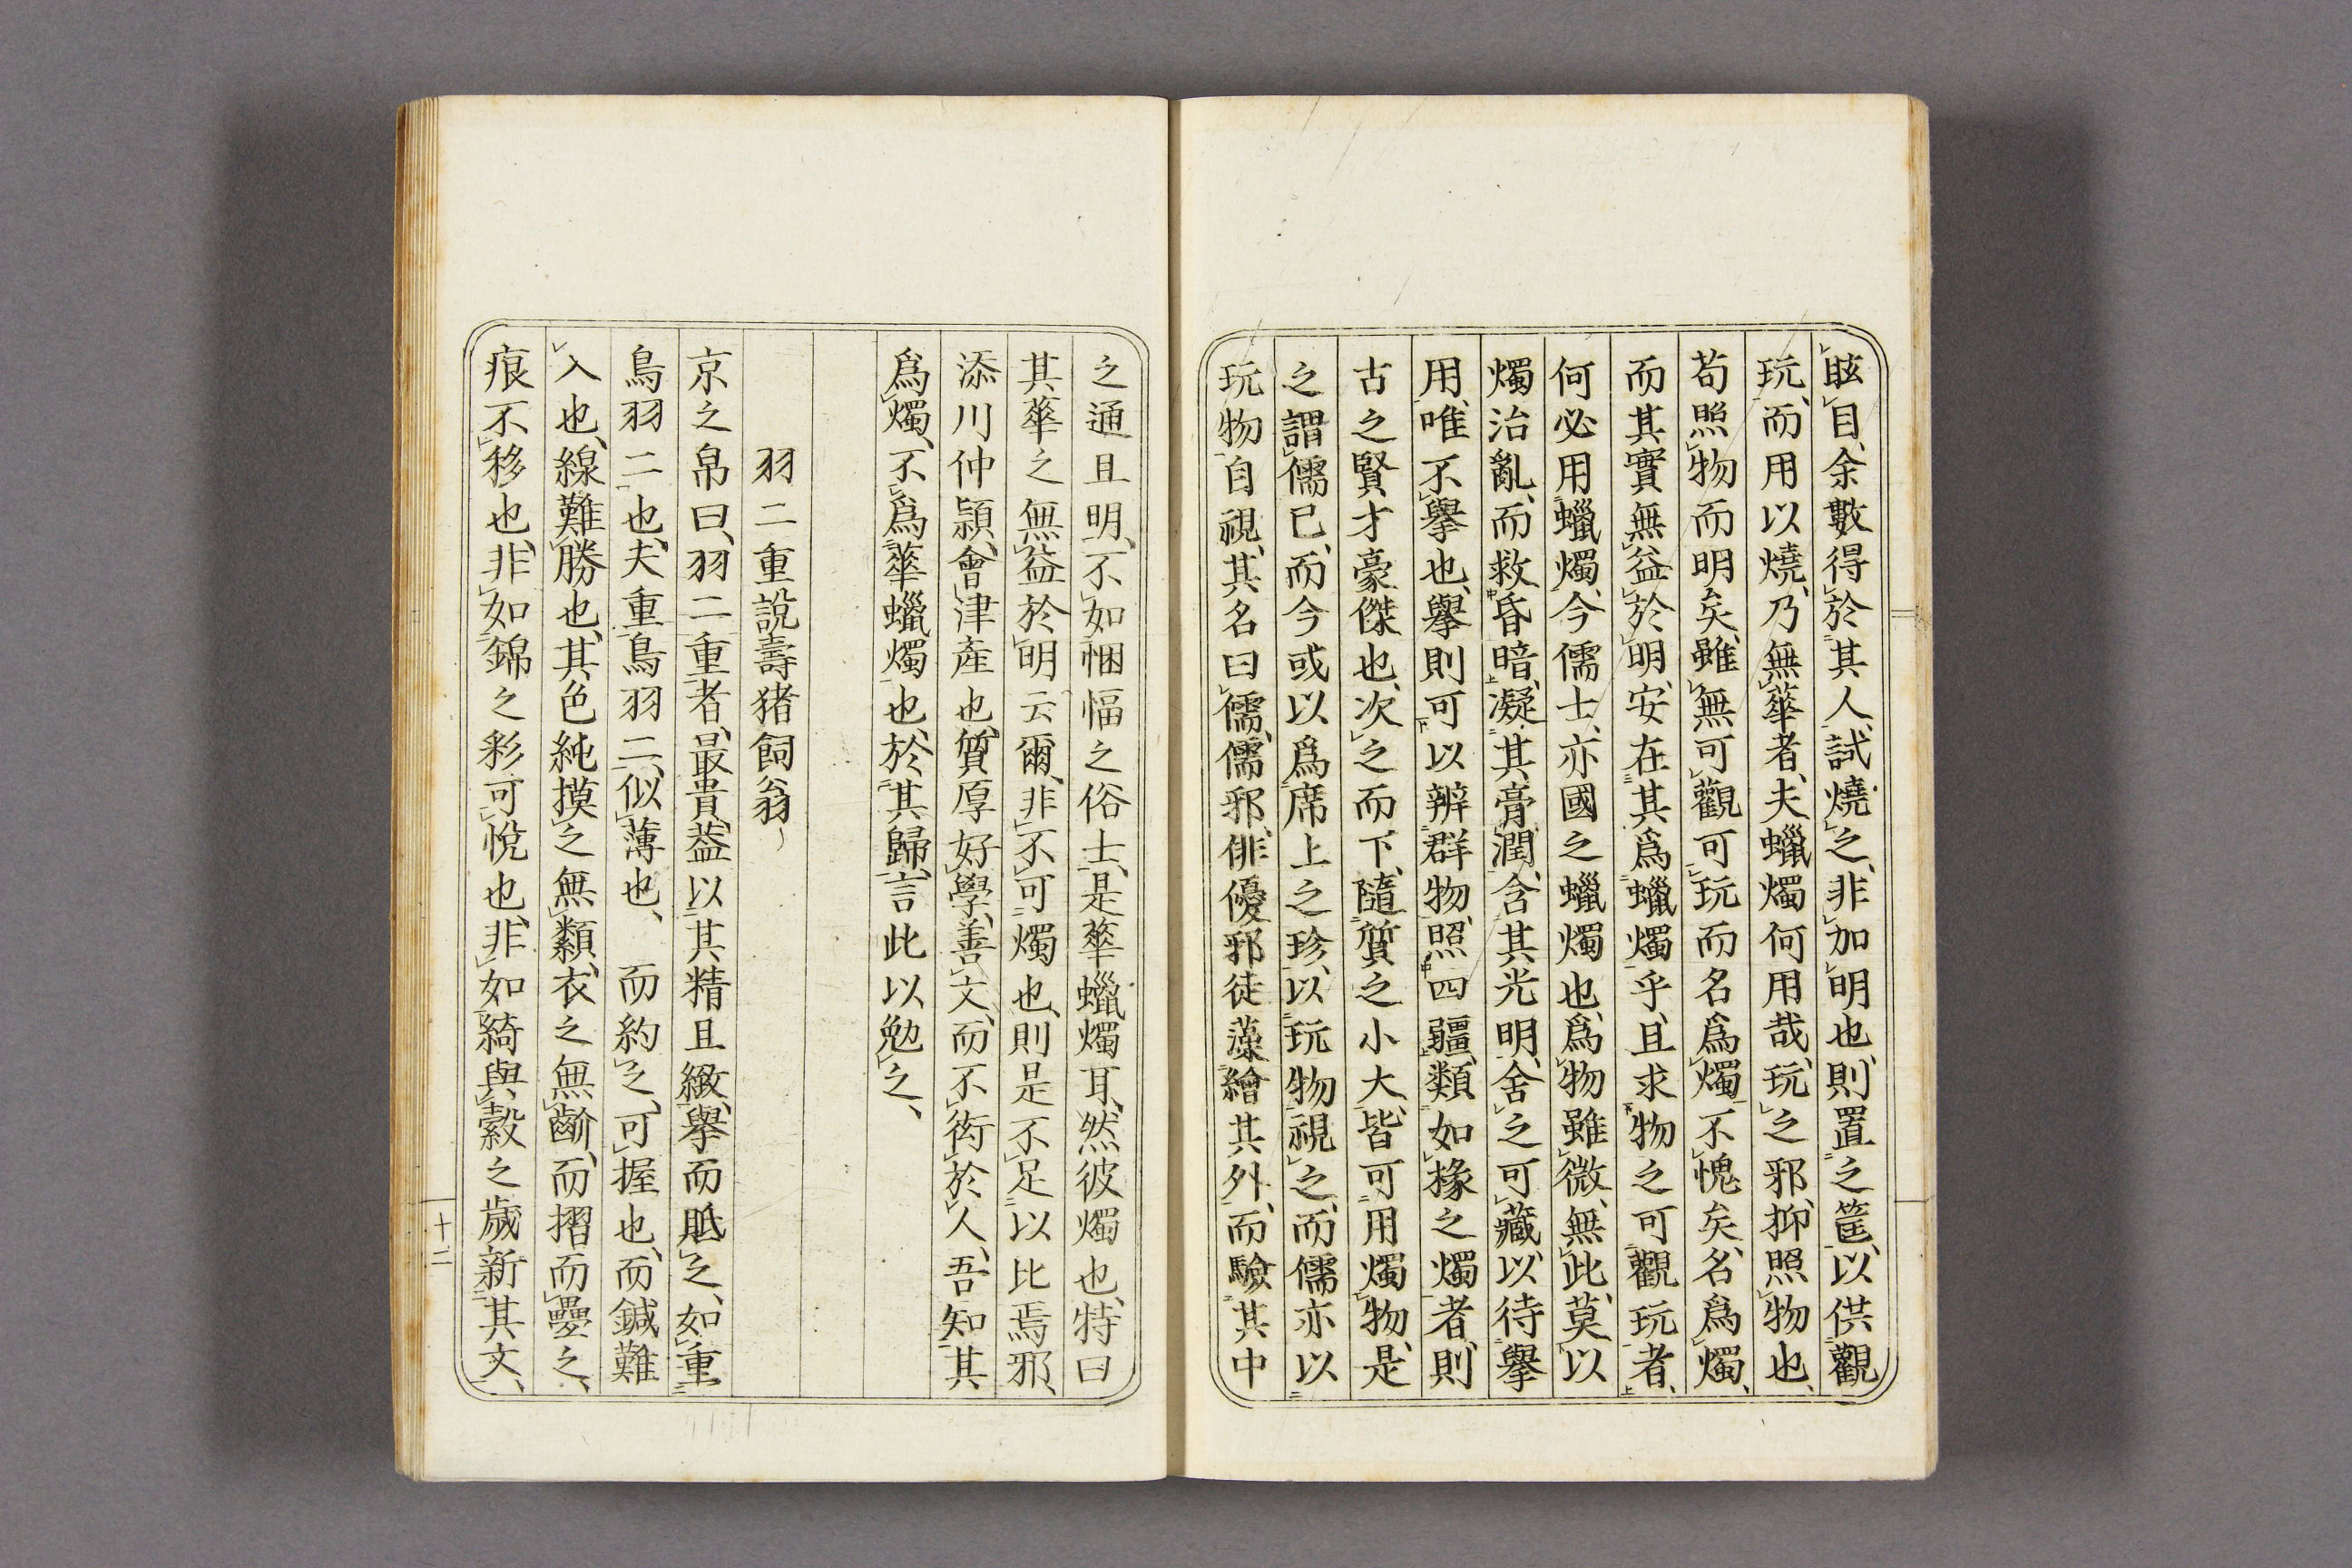 眩目、余數得於其人、試燒之、非加明也、則置之筐、以供觀
玩、而用以燒、乃無華者、夫蠟燭何用哉、玩之邪、抑照物也、
苟照物而明矣、雖無可觀可玩而名爲燭、不愧矣、名爲燭、
而其實無益於明、安在其爲蠟燭乎、且求物之可觀玩者、
何必用蠟燭、今儒士、亦國之蠟燭也、爲物雖微、無此、莫以
燭治亂、而救昏暗、凝其膏潤、含其光明、舍之可藏、以待擧
用、唯不擧也、擧則可以辨群物、照四疆、類如椽之燭者、則
古之賢才豪傑也、次之而下、隨質之小大、皆可用燭物、是
之謂儒已、而今或以爲席上之珍、以玩物視之、而儒亦以
玩物自視、其名曰儒、儒邪、俳優邪、徒藻繪其外、而驗其中
之通且明、不如悃愊之俗士、是華蠟燭耳、然彼燭也、特曰
其華之無益於明云爾、非不可燭也、則是不足以比焉邪、
添川仲潁、會津產也、質厚好學、善文、而不衒於人、吾知其
爲燭、不爲華蠟燭也、於其歸、言此以勉之、
羽二重說壽猪飼翁
京之帛曰、羽二重者、最貴、蓋以其精且緻、擧而眂之、如重
鳥羽二也、夫重鳥羽二、似薄也、而約之、可握也、而鍼難
入也、線難勝也、其色純摸之無纇、衣之無齘、而摺而疊之、
痕不移也、非如錦之彩可悅也、非如綺與縠之歲新其文、
十二